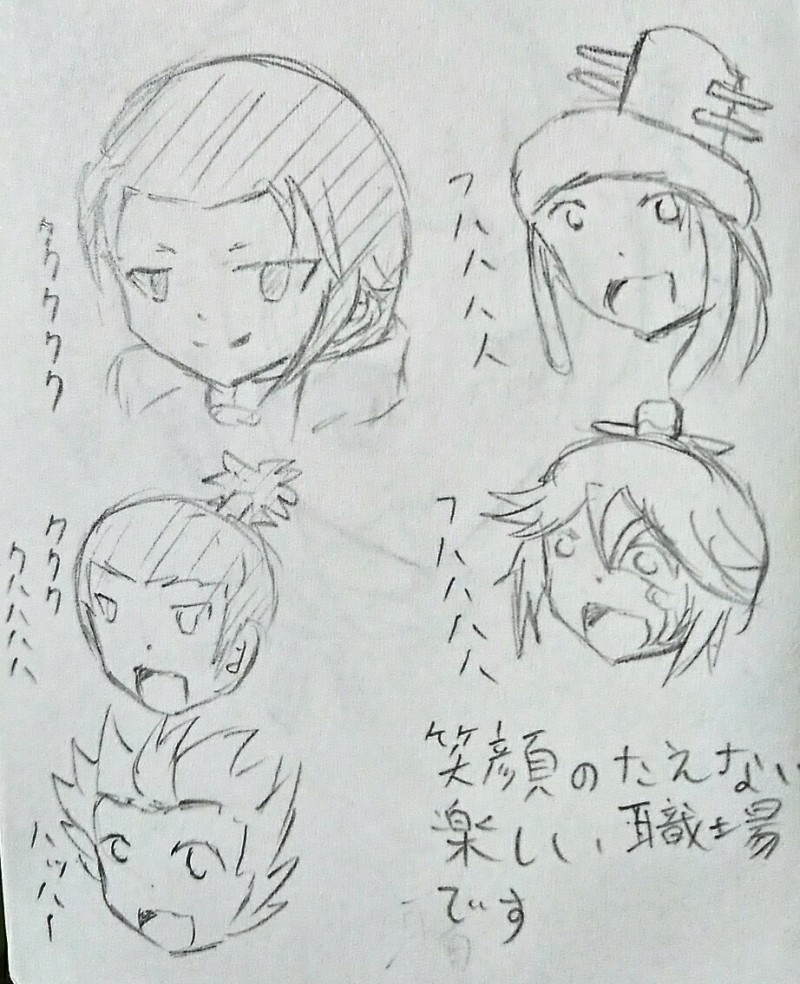 ククククク
フハハハハ
ククク
クハハハハ
フハハハハ
ハッハー
笑顔のたえない
楽しい職場
です